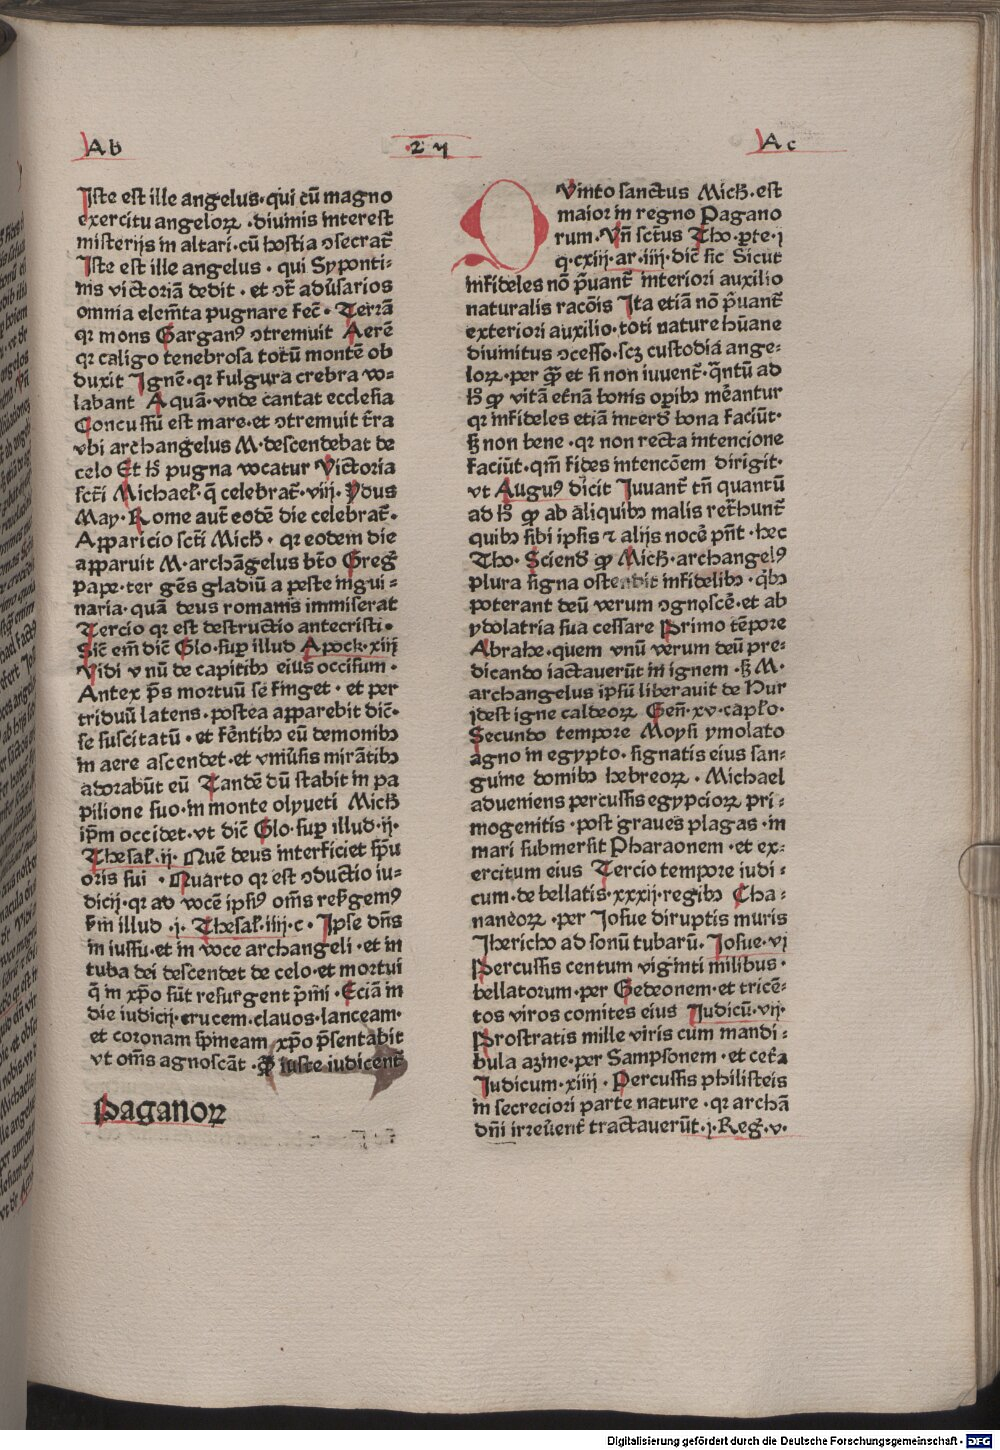 Ab
27
Ac
Iste est ille angelus·qui cū magno
exercitu angeloꝝ·diuinis interest
misterijs in altari·cū hostia ɔsecrat̄
Iste est ille angelus·qui Syponti-
nis victoriā dedit·et ɔt̄ adūsarios
omnia elem̄ta pugnare fec̄·Terrā
qꝛ mons Garganꝰ ɔtremuit Aerē
qꝛ caligo tenebrosa totū montē ob
duxit Ignē·qꝛ fulgura crebra vo-
labant Aquā·vnde cantat ecclesia
Concussū est mare·et ɔtremuit t̄ra
vbi archangelus M·descendebat de
celo Et h̄ pugna vocatur Victoria
sct̄i Michael·q̄ celebrat̄·viij·Ydus
May·Rome aut̄ eodē die celebrat̄·
Apparicio sct̄i Mich̄·qꝛ eodem die
apparuit M·archāgelus bt̄o Greḡ
pape·ter gēs gladiū a peste ingui-
naria·quā deus romanis immiserat
Tercio qꝛ est destructio antecristi·
Sic̄ em̄ dic̄ Glo·suꝑ illud Apock·xiij
Vidi vnū de capitibꝫ eius occisum·
Antex p̄s mortuū sē finget·et per
triduū latens·postea apparebit dic̄·
se suscitatū·et fēntibꝫ eū demonibꝫ
in aere ascendet·et vniūsis mirātibꝫ
adorabūt eū Tandē dū stabit in pa
pilione suo·in monte olyueti Mich̄
ip̄m occidet·vt dic̄ Glo·suꝑ illud·ij·
Thesal·ij·Quē deus interficiet sp̄u
oris sui·Quarto qꝛ est ɔductio iu-
dicij·qꝛ ad vocē ipsiꝰ om̄s resꝰgemꝰ
s̄m illud·j·Thesal·iiij·c·Ipse dn̄s
in iussu·et in voce archangeli·et in
tuba dei descendet de celo·et mortui
q̄ in xp̄o sūt resurgent p̄mi·Eciā in
die iudicij·crucem·clauos·lanceam·
et coronam spineam xp̄o p̄sentabit
vt om̄s agnoscāt·ꝙ iuste iudicent̄
Paganoꝝ
QVinto sanctus Mich̄·est
maior in regno Pagano
rum·Vn̄ sct̄us Tho·ꝑte·j
q·cxiij·ar·iiij·dic̄ sic Sicut
infideles nō p̄uant̄ interiori auxilio
naturalis racōis Ita etiā nō p̄uant̄
exteriori auxilio·toti nature hūane
diuinitus ɔcesso·scꝫ custodia ange-
loꝝ·per quā et si non iuuent̄·q̄ntū ad
h̄ ꝙ vitā et̄nā bonis oꝑibꝫ mēantur
qꝛ infideles etiā interd̄ bona faciūt·
sꝫ non bene·qꝛ non recta intencione
faciūt·qm̄ fides intencōem dirigit·
vt Auguꝰ dicit Iuuant̄ tn̄ quantū
ad h̄ ꝙ ab aliquibꝫ malis ret̄hunt̄
quibꝫ sibi ipsis ⁊ alijs nocē pn̄t·hec
Tho·Sciend̄ ꝙ Mich̄·archangelꝰ
plura signa ostendit infidelibꝫ·q̄bꝫ
poterant deū verum ɔgnoscē·et ab
ydolatria sua cessare Primo tēpore
Abrahe·quem vnū verum deū pre-
dicando iactauerūt in ignem·sꝫ M·
archangelus ipsū liberauit de Hur
idest igne caldeoꝝ Gen̄·xv·capl̄o·
Secundo tempore Moysi ymolato
agno in egypto·signatis eius san-
guine domibꝫ hebreoꝝ·Michael
adueniens percussis egypcioꝝ pri-
mogenitis·post graues plagas·in
mari submersit Pharaonem·et ex-
ercitum eius Tercio tempore iudi-
cum·de bellatis·xxxij·regibꝫ Cha-
naneoꝝ·per Iosue diruptis muris
Ihericho ad sonū tubarū·Iosue·vj
Percussis centum viginti milibus·
bellatorum·per Gedeonem·et tricē-
tos viros comites eius Iudicū·vij·
Prostratis mille viris cum mandi-
bula azine·per Sampsonem·et cet̄a
Iudicum·xiiij·Percussis philisteis
in secreciori parte nature·qꝛ archā
dn̄i irreūent̄ tractauerūt·j·Reḡ·v·
Digitalisierung gefördert durch die Deutsche Forschungsgemeinschaft - DFG